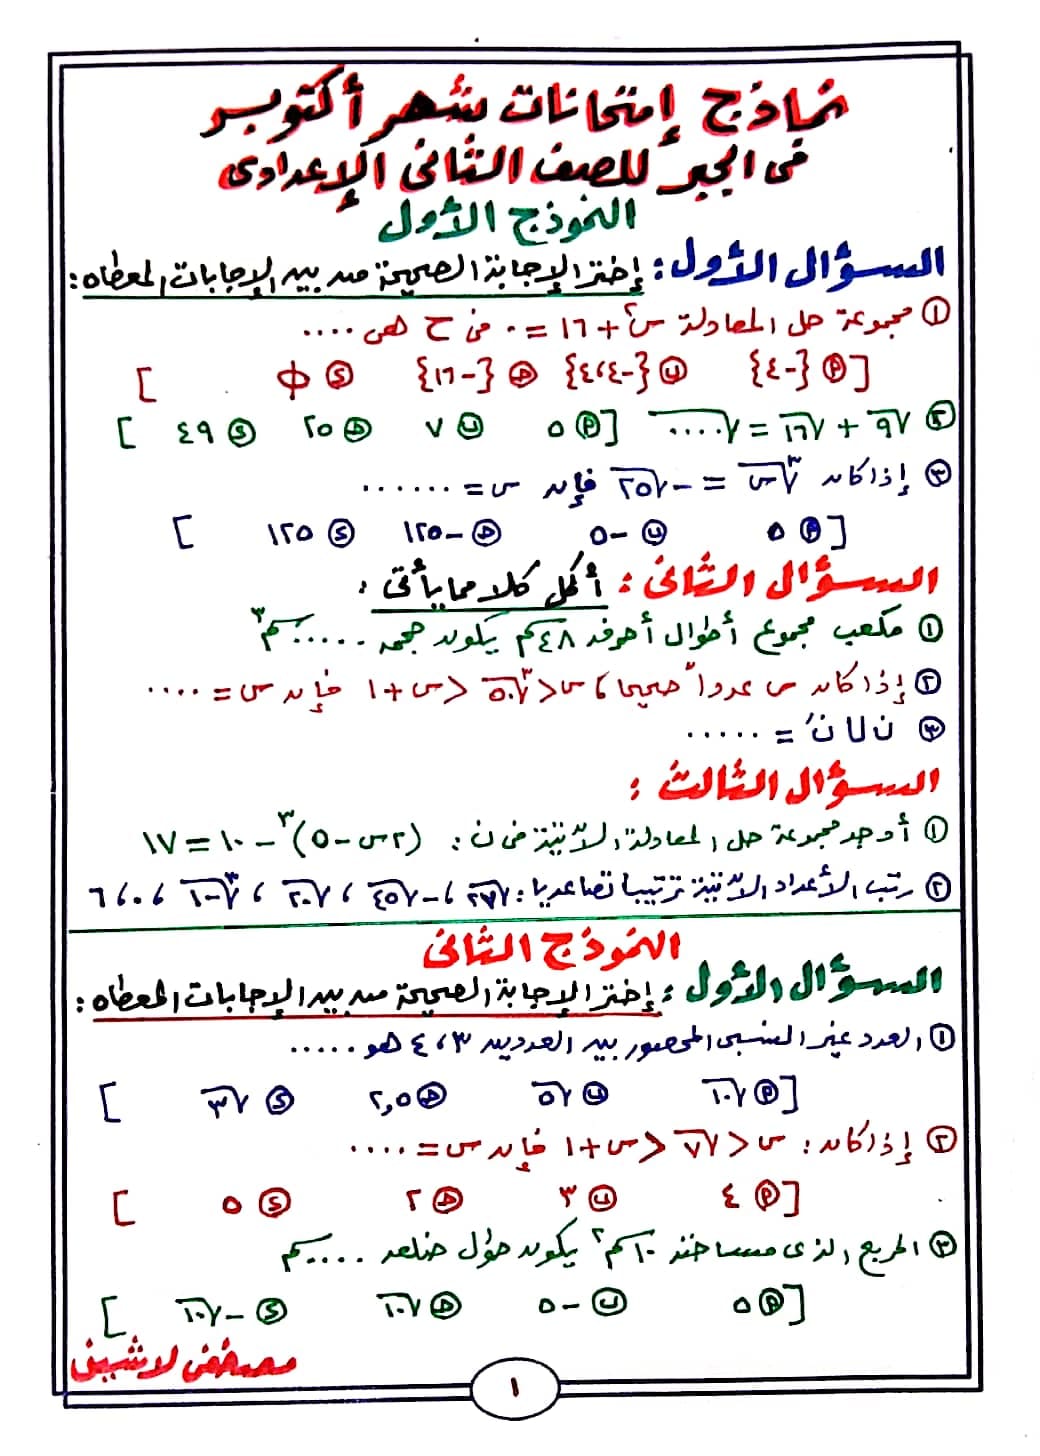 نماذج إمتحانات شهر أكتوبر
فى الجبر للصف الثانى الإعدادى
النموذج الأول
السؤال الأول: إختر الإجابة الصحيحة من بين الإجابات المعطاه:
① مجموعة حل المعادلة س² + ١٦ = ٠ فى ح هى ....
[ (أ) {-٤} (ب) {-٤،٤} (حـ) {-١٦} (د) φ ]
② √٩ + √١٦ = √.... [ (أ) ٥ (ب) ٧ (حـ) ٢٥ (د) ٤٩ ]
③ إذا كان ∛س = -√٢٥ فإن س = ......
[ (أ) ٥ (ب) -٥ (حـ) -١٢٥ (د) ١٢٥ ]
السؤال الثانى: أكمل كلا مما يأتى:
① مكعب مجموع أطوال أحرفه ٤٨سم يكون حجمه ..... سم³
② إذا كان س عدداً صحيحا ، س < ∛٥٠ < س + ١ فإن س = ....
③ ن ∪ نَ = .....
السؤال الثالث:
① أوجد مجموعة حل المعادلة الآتية فى ن: (٢س - ٥)³ - ١٠ = ١٧
② رتب الأعداد الآتية ترتيبا تصاعديا: √٢٧ ، -√٤٥ ، √٢٠ ، ∛-١ ، ٠ ، ٦
النموذج الثانى
السؤال الأول: إختر الإجابة الصحيحة من بين الإجابات المعطاه:
① العدد غير النسبى المحصور بين العددين ٣ ، ٤ هو .....
[ (أ) √١٠ (ب) √٥ (حـ) ٢,٥ (د) √٣ ]
② إذا كان: س < √٧ < س + ١ فإن س = ....
[ (أ) ٤ (ب) ٣ (حـ) ٢ (د) ٥ ]
③ المربع الذى مساحته ١٠سم² يكون طول ضلعه .... سم
[ (أ) ٥ (ب) -٥ (حـ) √١٠ (د) -√١٠ ]
مصطفى لاشين
١